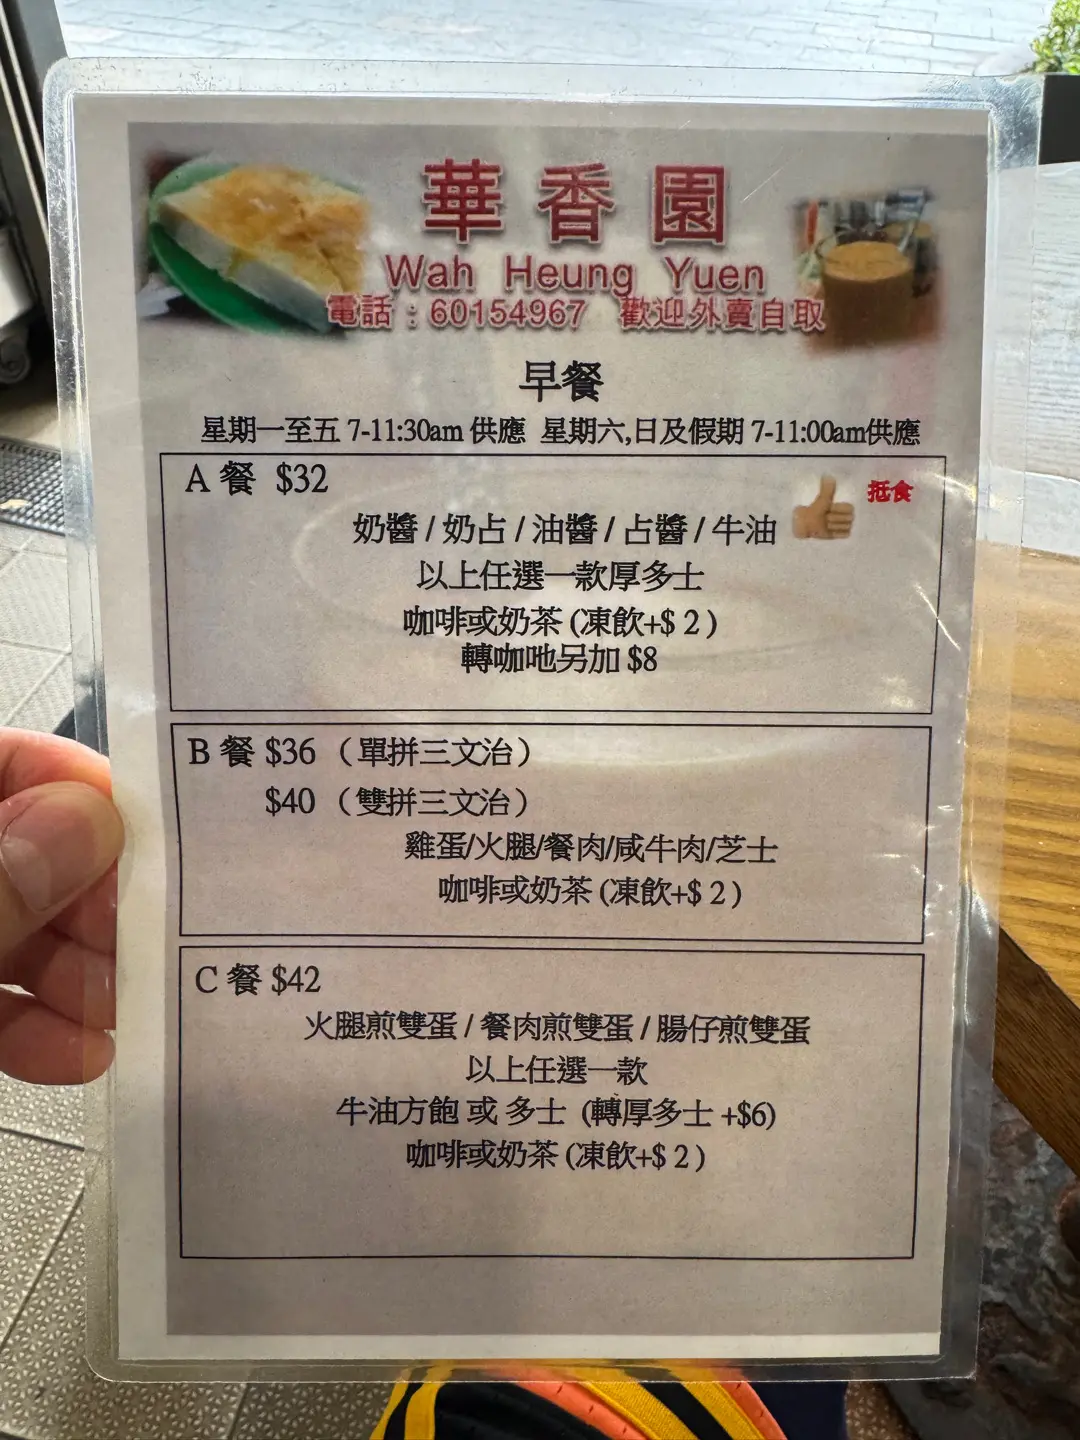 華香園
Wah Heung Yuen
電話：60154967 歡迎外賣自取
早餐
星期一至五 7-11:30am 供應 星期六,日及假期 7-11:00am供應
A 餐 $32
抵食
奶醬 / 奶占 / 油醬 / 占醬 / 牛油
以上任選一款厚多士
咖啡或奶茶 (凍飲+$ 2 )
轉咖吔另加 $8
B 餐 $36 （單拼三文治）
$40 （雙拼三文治）
雞蛋/火腿/餐肉/咸牛肉/芝士
咖啡或奶茶 (凍飲+$ 2 )
C 餐 $42
火腿煎雙蛋 / 餐肉煎雙蛋 / 腸仔煎雙蛋
以上任選一款
牛油方飽 或 多士 (轉厚多士 +$6)
咖啡或奶茶 (凍飲+$ 2 )